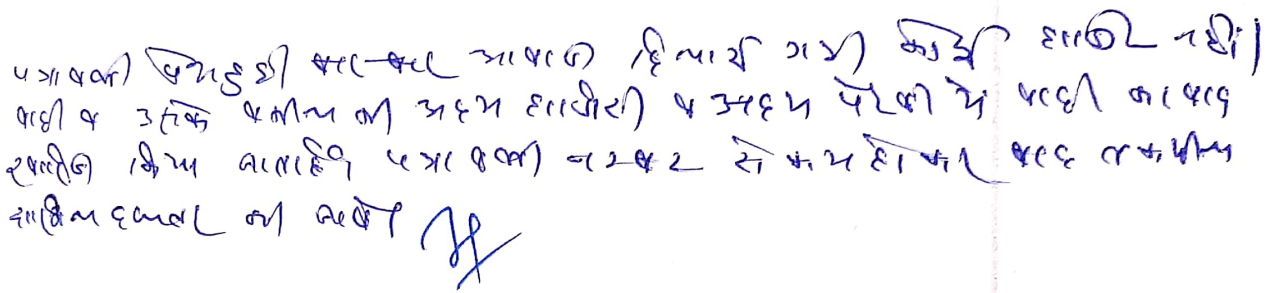 पत्रावली पेश हुई। बार-बार आवाज दिलाई गयी कोई हाजिर नहीं।
वादी व उसके वकील की अदम हाजरी व अदम पैरवी में वादी का वाद
खारीज किया जाता है। पत्रावली नम्बर से कम होकर बाद तकमील
दाखिल दफ्तर की जावे।